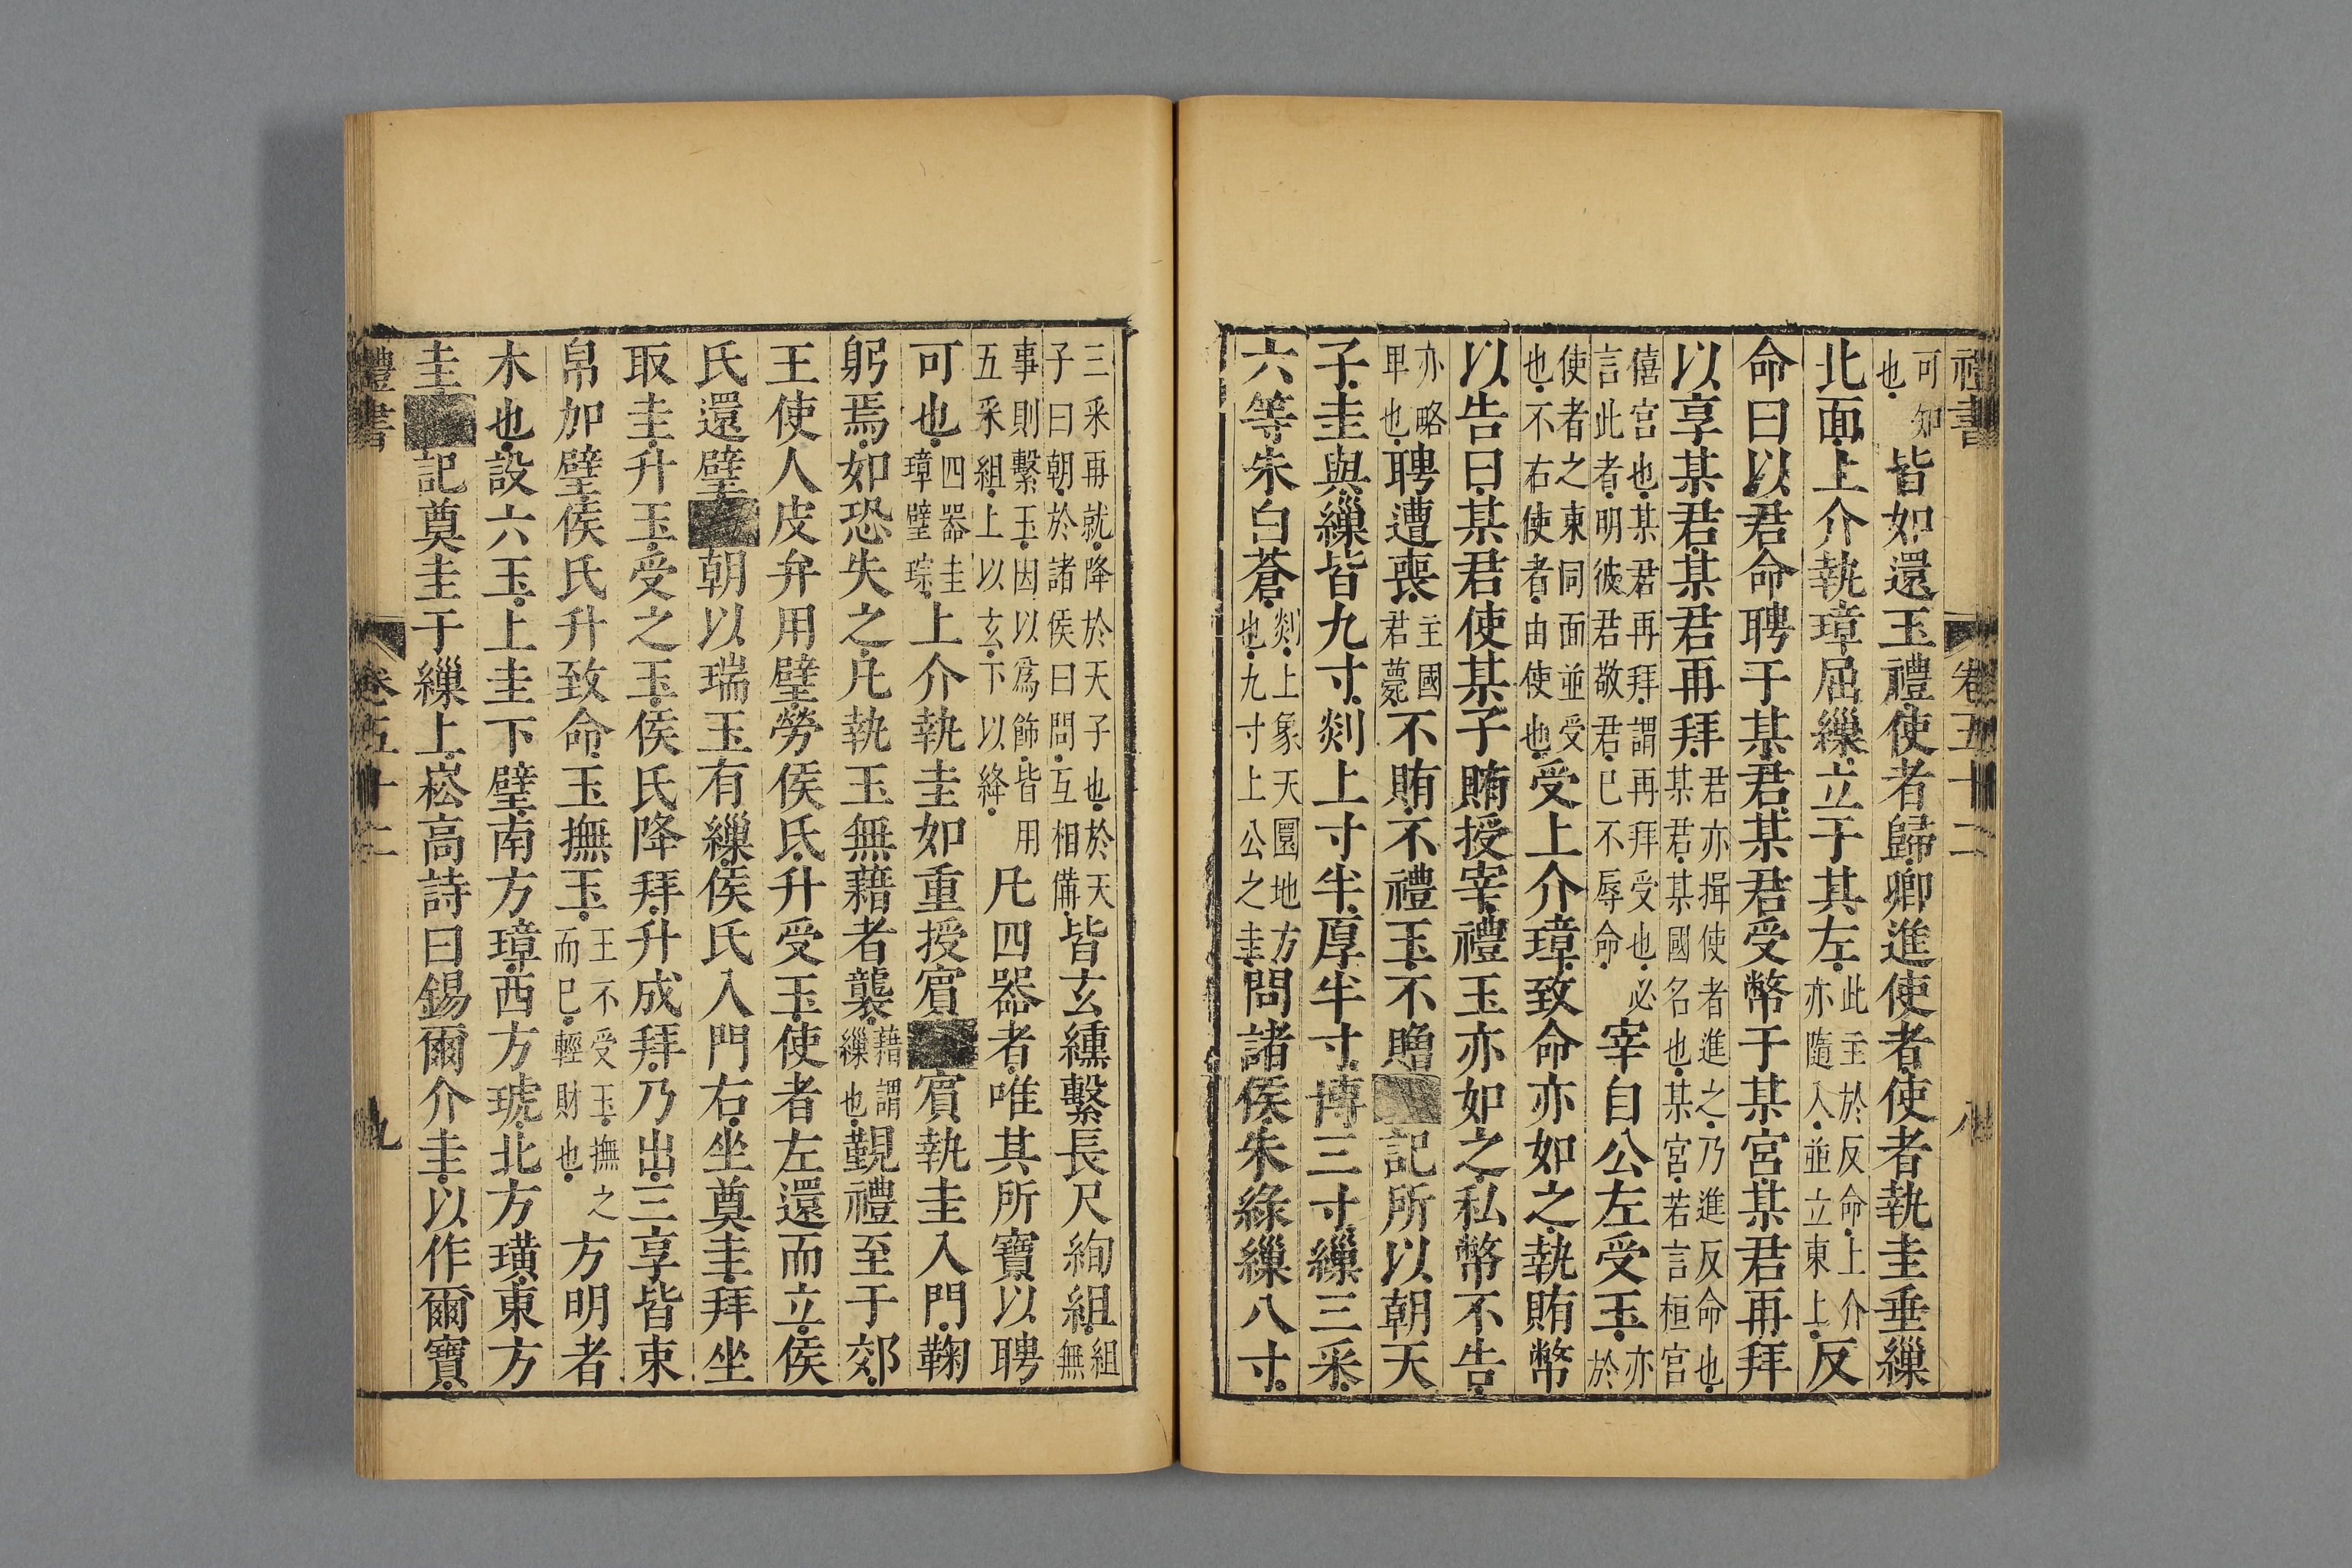 禮書 卷五十二 八
可知也皆如還玉禮使者歸卿進使者使者執圭垂繅
北面上介執璋屈繅立于其左此主於反命上介亦隨入並立東上反
命曰以君命聘于某君某君受幣于某宮某君再拜
以享某君某君再拜君亦揖使者進之乃進反命也某君某國名也某宮若言桓宮
僖宮也某君再拜謂再拜受也必言此者明彼君敬君已不辱命宰自公左受玉亦於
使者之東同面並受也不右使者由使也受上介璋致命亦如之執賄幣
以告曰某君使某子賄授宰禮玉亦如之私幣不告
亦略卑也聘遭喪主國君薨不賄不禮玉不贈記所以朝天
子圭與繅皆九寸剡上寸半厚半寸博三寸繅三采
六等朱白蒼剡上象天圜地方也九寸上公之圭問諸侯朱綠繅八寸
三采再就降於天子也於天子曰朝於諸侯曰問互相備皆玄纁繫長尺絢組組無
事則繫玉因以爲飾皆用五采組上以玄下以絳凡四器者唯其所寶以聘
可也四器圭璋璧琮上介執圭如重授賓賓執圭入門鞠
躬焉如恐失之凡執玉無藉者襲藉謂繅也覲禮至于郊
王使人皮弁用璧勞侯氏升受玉使者左還而立侯
氏還璧朝以瑞玉有繅侯氏入門右坐奠圭拜坐
取圭升玉受之玉侯氏降拜升成拜乃出三享皆束
帛加璧侯氏升致命玉撫玉王不受玉撫之而已輕財也方明者
木也設六玉上圭下璧南方璋西方琥北方璜東方
圭記奠圭于繅上崧高詩曰錫爾介圭以作爾寶
禮書 卷五十二 九